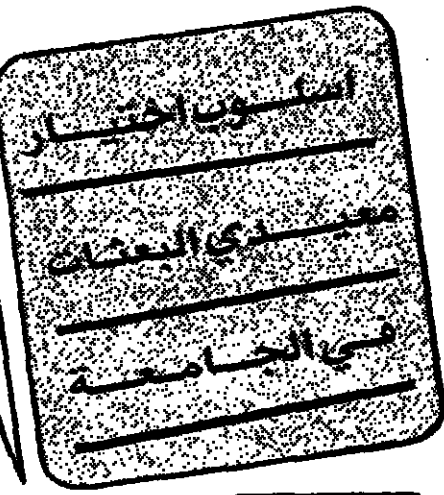 أسلوب اختيار
معيدي البعثات
في الجامعة